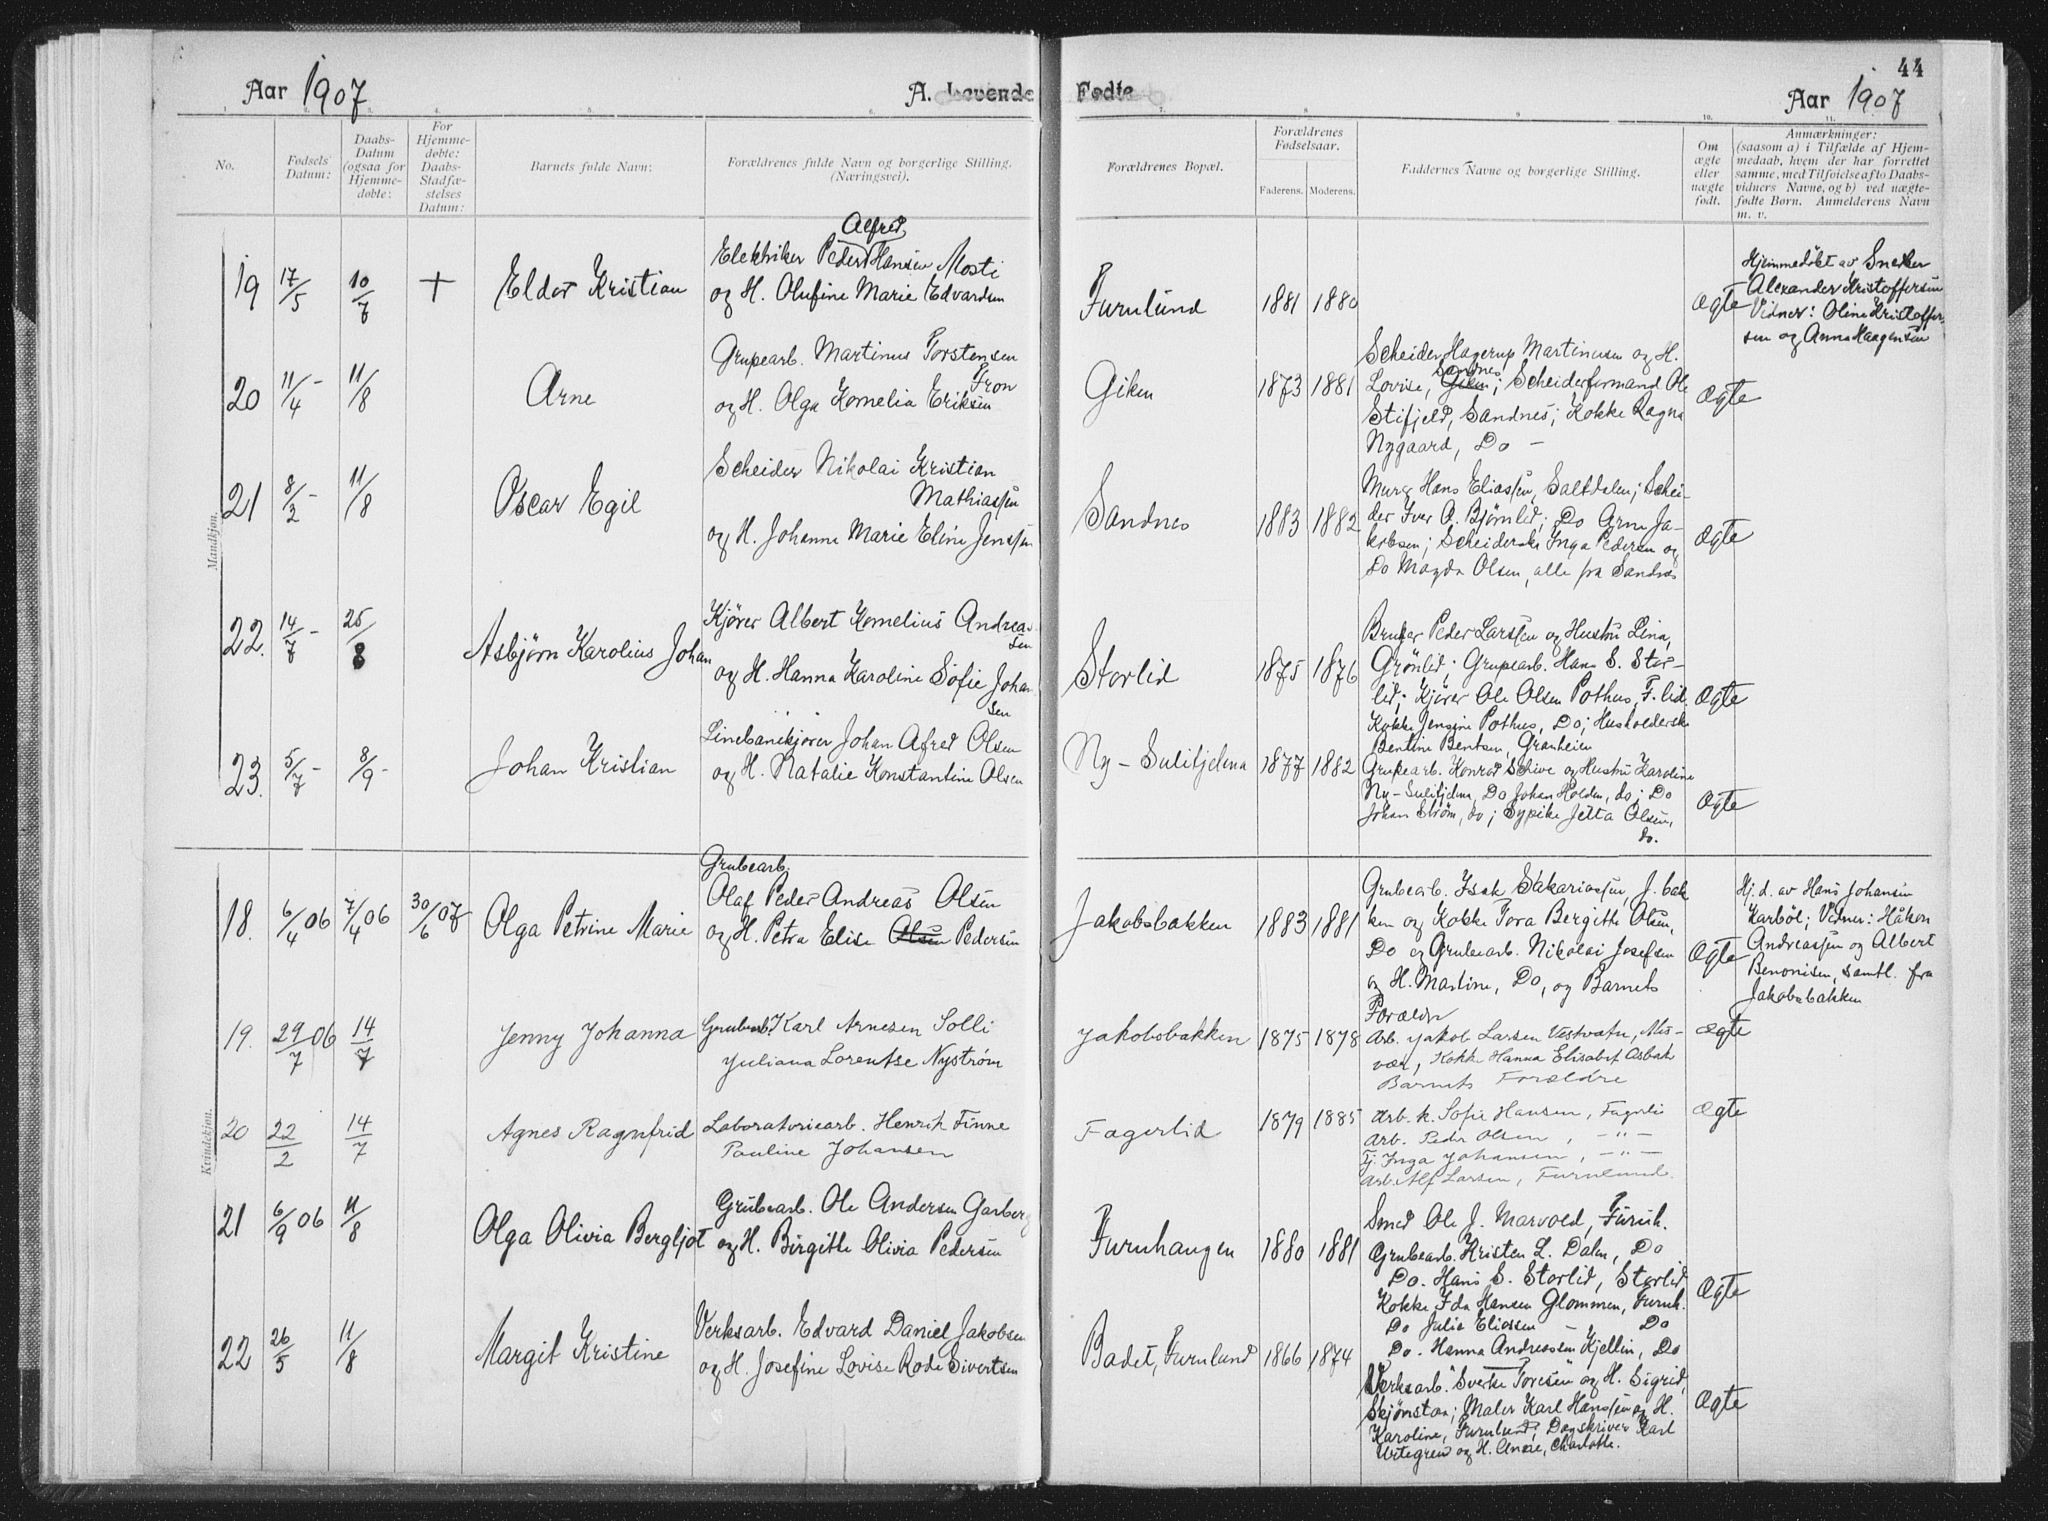 44
Aar 1907
A. Levende Fødte
Aar 1907
1. 2. 3. 4. 5. 6. 7. 8. 9. 10. 11.
No.
Fødsels Datum:
Daabs-
Datum
(ogsaa for
Hjemme-
døbte:
For
Hjemme-
døbte:
Daabs-
Stadfæ-
stelses
Datum:
Barnets fulde Navn:
Forældrenes fulde Navn og borgerlige Stilling.
(Næringsvei).
Forældrenes Bopæl.
Forældrenes
Fødselsaar.
Faderens. Moderens.
Faddernes Navne og borgerlige Stilling.
Om
ægte
eller
uægte
født.
Anmærkninger:
(saasom a) i Tilfælde af Hjem-
medaab, hvem der har forrettet
samme, med Tilføielse af to Daabs-
vidners Navne, og b) ved uægte-
fødte Børn. Anmelderens Navn
m. v.
Mandkjøn.
19 17/5 10/7 + Eldor Kristian
Alfred
Elektriker Peder Hansen Mosti
og H. Olufine Marie Edvardsen
Furulund 1881 1880 Ægte
Hjemmedøbt av Snedker
Alexander Kristoffersen
Vidner: Oline Kristoffer-
sen og Anna Haagensen
20 11/4 - 11/8 Arne
Grubearb. Martinus Torstensen
Tron
og H. Olga Kornelia Eriksen
Giken 1873 1881
Scheider Hagerup Martinusen og H.
Sandnes
Lovise, Giken; Scheiderformand Ole
Stifjeld, Sandnes; Kokke Ragna
Nygaard, Do -
Ægte
21 8/2 - 11/8 Oscar Egil
Scheider Nikolai Kristian
Mathiassen
og H. Johanne Marie Eline Jenssen
Sandnes 1883 1882
Murer Hans Eliassen, Saltdalen; Schei-
der Iver A. Bjørnlid; Do Arne Ja-
kobsen; Scheiderske Inga Pedersen og
Do Magda Olsen, alle fra Sandnes
Ægte
22. 14/7 - 25/8 Asbjørn Karolius Johan
Kjører Albert Kornelius Andrea-
sen
og H. Hanna Karoline Sofie Johan
sen
Storlid 1875 1876
Bruger Peder Larssen og Hustru Lina,
Grönlid; Grubearb. Hans S. Stor-
lid; Kjörer Ole Olsen Pothus, F. lid.
Kokke Jensine Pothus, Do; Husholderske
Bentine Bentsen, Granheien
Ægte
23. 5/7 - 8/9 - Johan Kristian
Linebanekjører Johan Alfred Olsen
og H. Natalie Konstantine Olsen
Ny-Sulitjelma 1877 1882
Grubearb. Konrad Schive og Hustru Karoline
Ny-Sulitjelma, Do Johan Holden, do; Do
Johan Strøm, do; Sypike Jetta Olsen,
do.
Ægte
Kvindekjøn.
18. 6/4 06 7/4 06 30/6 07 Olga Petrine Marie
Grubearb.
Olaf Peder Andreas Olsen
og H. Petra Elise Olsen Pedersen
Jakobsbakken 1883 1881
Grubearb. Isak Sakariassen, J. bak
ken og Kokke Tora Bergitte Olsen,
Do og Grubearb. Nikolai Josefsen
og H. Martine, Do, og Barnets
Forældre
Ægte
Hj. d. av Hans Johansen
Karböl; Vidner: Håkon
Andreassen og Albert
Benonisen, samtl. fra
Jakobsbakken
19. 29/7 06 14/7 Jenny Johanna
Grubearb. Karl Arnesen Solli
Juliana Lorentse Nyström
Jakobsbakken 1875 1878
Arb. Jakob Larsen Vestvatn, Mis-
vær, Kokke Hanna Elisabet Asbak
Barnets Forældre
Ægte
20 22/2 14/7 Agnes Ragnfrid
Laboratoriearb. Henrik Finne
Pauline Johansen
Fagerlid 1879 1885
Arb. k. Sofie Hansen, Fagerli
Arb. Peder Olsen, -"-
Tj. Inga Johansen, -"-
Arb. Alf Larsen, Furulund.
Ægte
21 6/9 06 11/8 Olga Olivia Bergljot
Grubearb. Ole Andersen Garberg
og H. Birgitte Olivia Pedersen
Furuhaugen 1880 1881
Smed Ole J. Marvold, Furuh.
Grubearb. Kristen L. Dalen, Do
Do. Hans S. Storlid, Storlid
Kokke Ida Hansen Glommen, Furuh.
Do Julie Eliassen - Do
Do. Hanna Andreassen Kjellin, Do
Ægte
22 26/5 11/8 Margit Kristine
Verksarb. Edvard Daniel Jakobsen
og H. Josefine Lovise Rode Sivertsen
Badet, Furulund 1866 1874
Verksarb. Sverke Toresen og H. Sigrid,
Skjønstaa; Maler Karl Hanssen og H.
Karoline, Furulund; Dagskriver Karl
og H. Charlotte.
Ægte